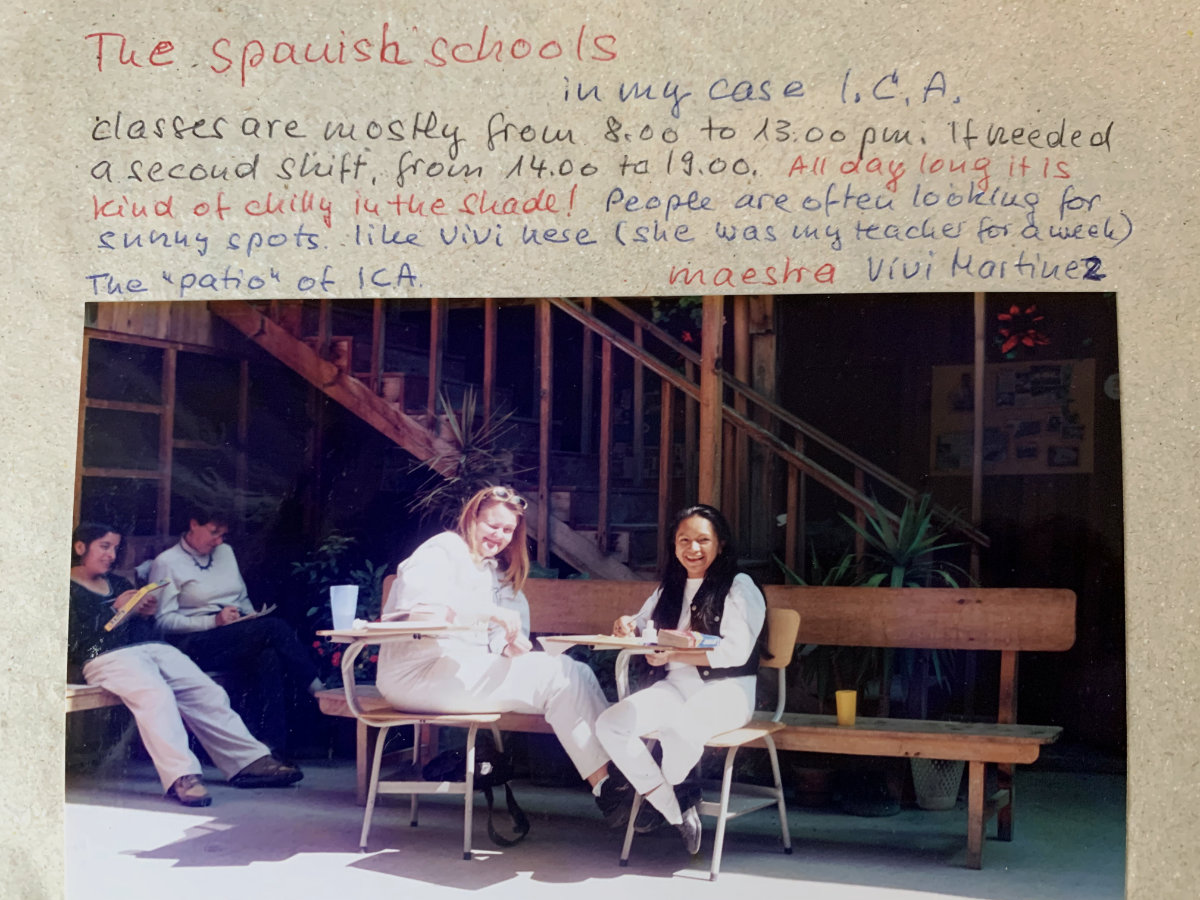 The Spanish schools
in my case I.C.A.
classes are mostly from 8.00 to 13.00 pm. If needed
a second shift, from 14.00 to 19.00. All day long it is
kind of chilly in the shade! People are often looking for
sunny spots. like Vivi here (she was my teacher for a week)
The "patio" of ICA. maestra Vivi Martinez